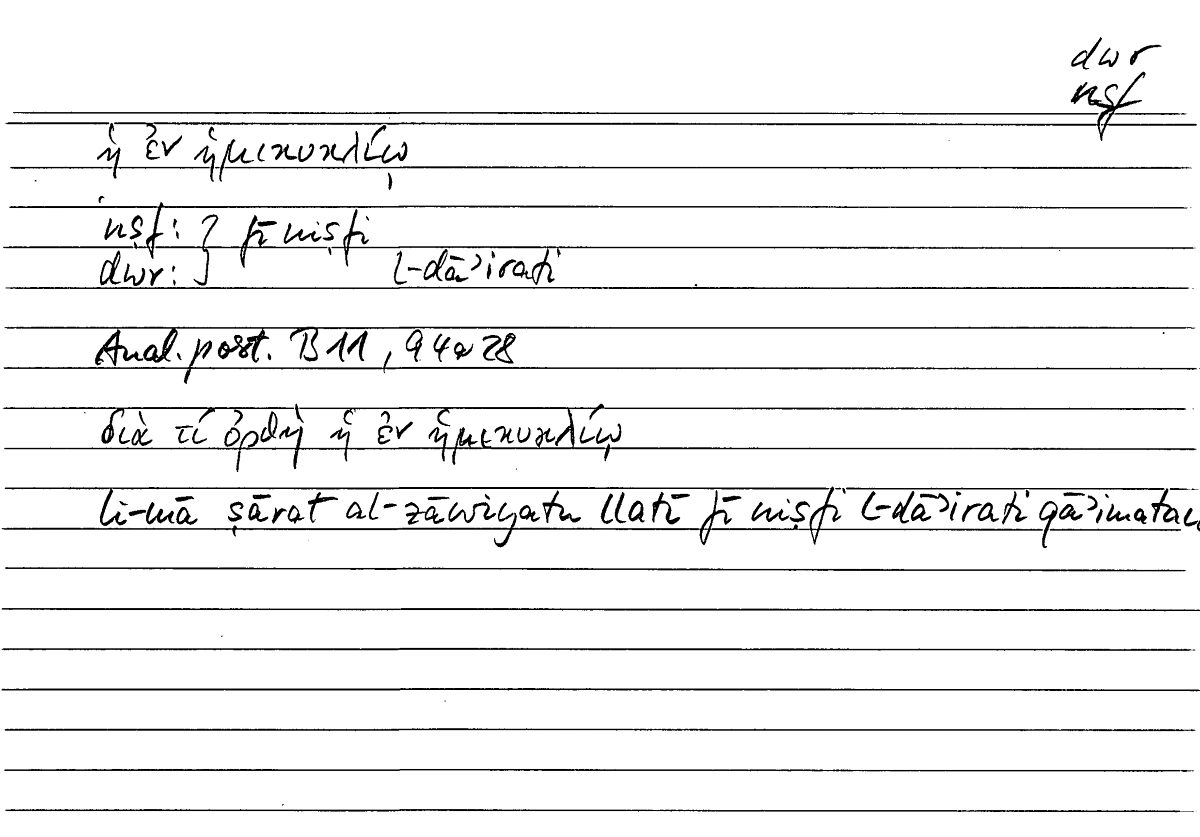 dwr
nṣf
ἡ ἐν ἡμικυκλίῳ
nṣf: } fī niṣfi
dwr: } l-dāʾirati
Anal. post. B 11, 94a28
διὰ τί ὀρθὴ ἡ ἐν ἡμικυκλίῳ
li-mā ṣārat al-zāwiyatu llatī fī niṣfi l-dāʾirati qāʾimatan